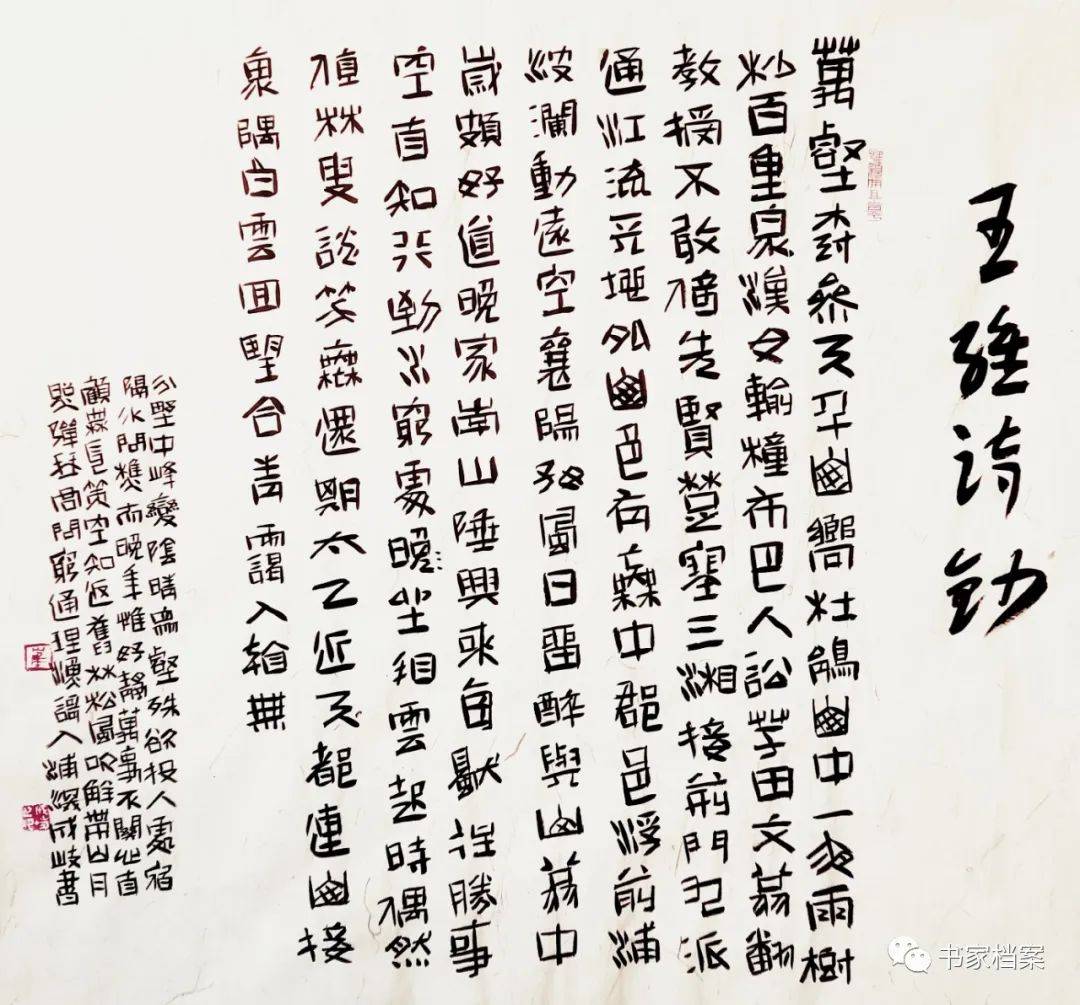 王維詩鈔
萬壑樹參天千山響杜鵑山中一夜雨樹
杪百重泉漢女輸橦布巴人訟芋田文翁翻
教授不敢倚先賢楚塞三湘接荊門九派
通江流天地外山色有無中郡邑浮前浦
波瀾動遠空襄陽好風日留醉與山翁中
歲頗好道晚家南山陲興來每獨往勝事
空自知行到水窮處晚坐看雲起時偶然
值林叟談笑無還期太乙近天都連山接
隅白雲回望合青靄入看無
分野中峰變陰晴眾壑殊欲投人處宿
隔水問樵夫晚年惟好靜萬事不關心自
顧無長策空知返舊林松風吹解帶山月
照彈琴君問窮通理漁謌入浦深成岐書
书家档案